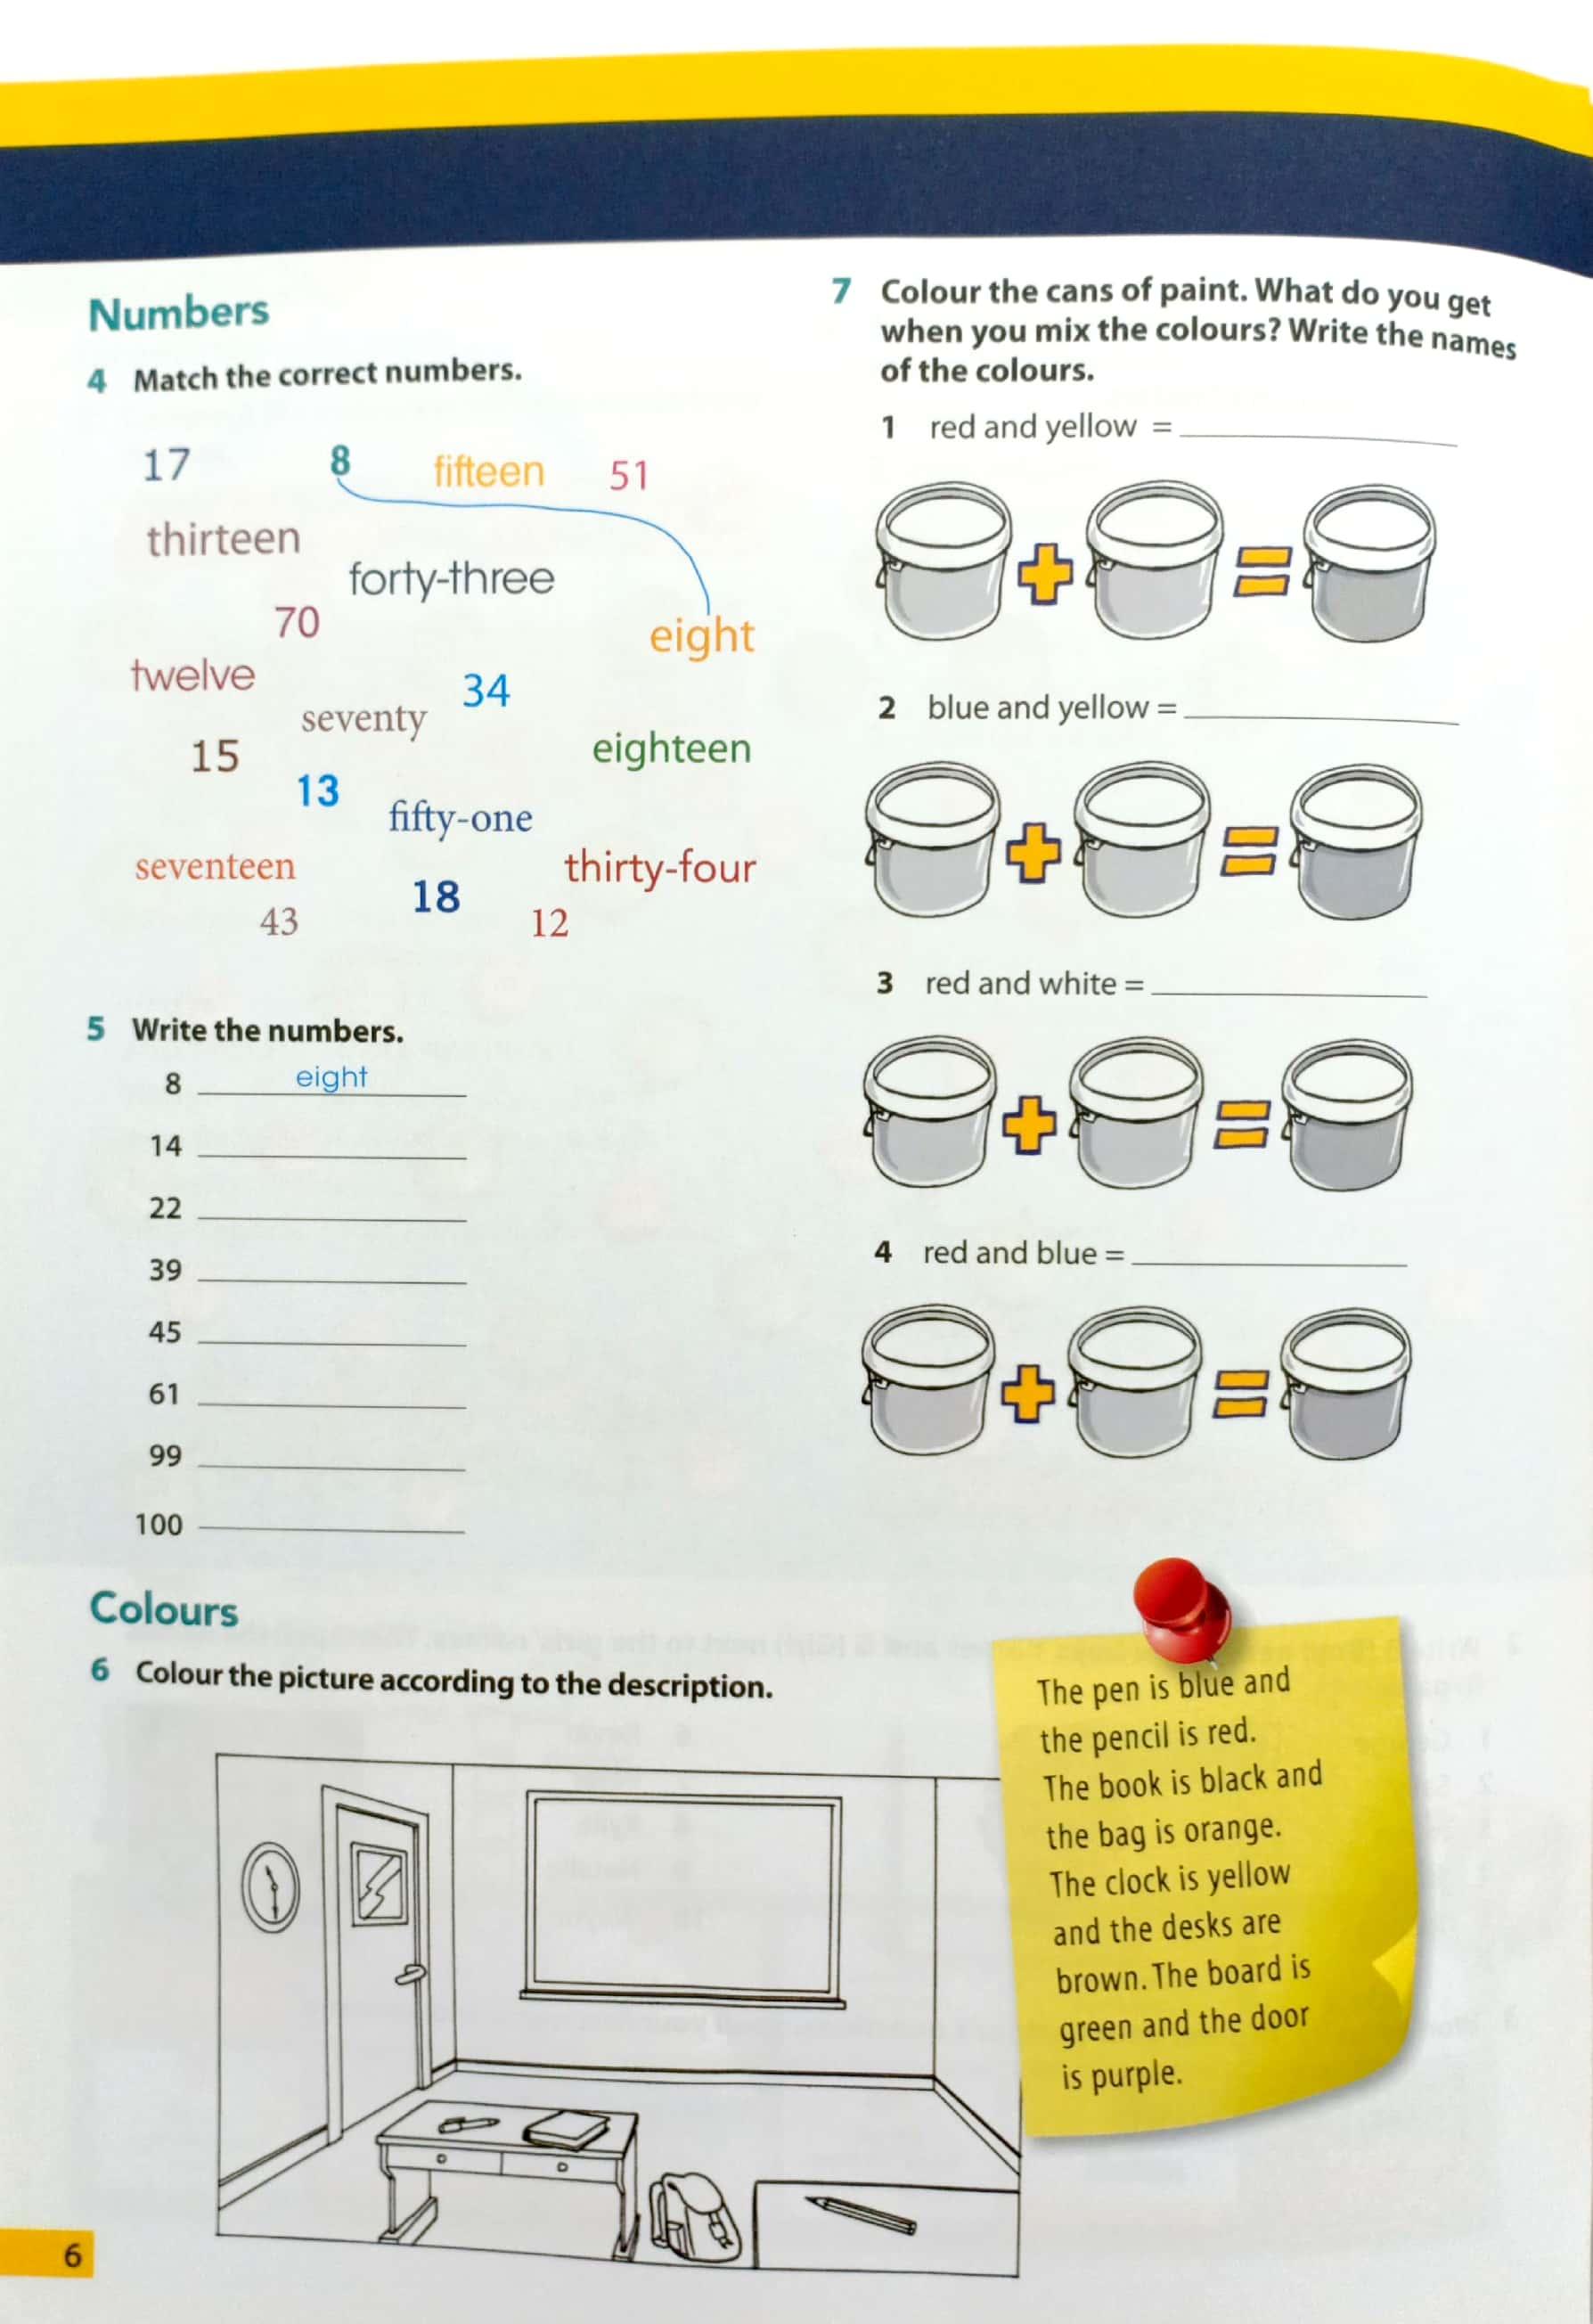 Numbers
4 Match the correct numbers.
17 8 fifteen 51
thirteen
forty-three
70
eight
twelve
34
seventy
15
eighteen
13
fifty-one
seventeen
thirty-four
18
43
12
5 Write the numbers.
8 eight
14
22
39
45
61
99
100
Colours
6 Colour the picture according to the description.
The pen is blue and
the pencil is red.
The book is black and
the bag is orange.
The clock is yellow
and the desks are
brown. The board is
green and the door
is purple.
7 Colour the cans of paint. What do you get
when you mix the colours? Write the names
of the colours.
1 red and yellow =
2 blue and yellow =
3 red and white =
4 red and blue =
6